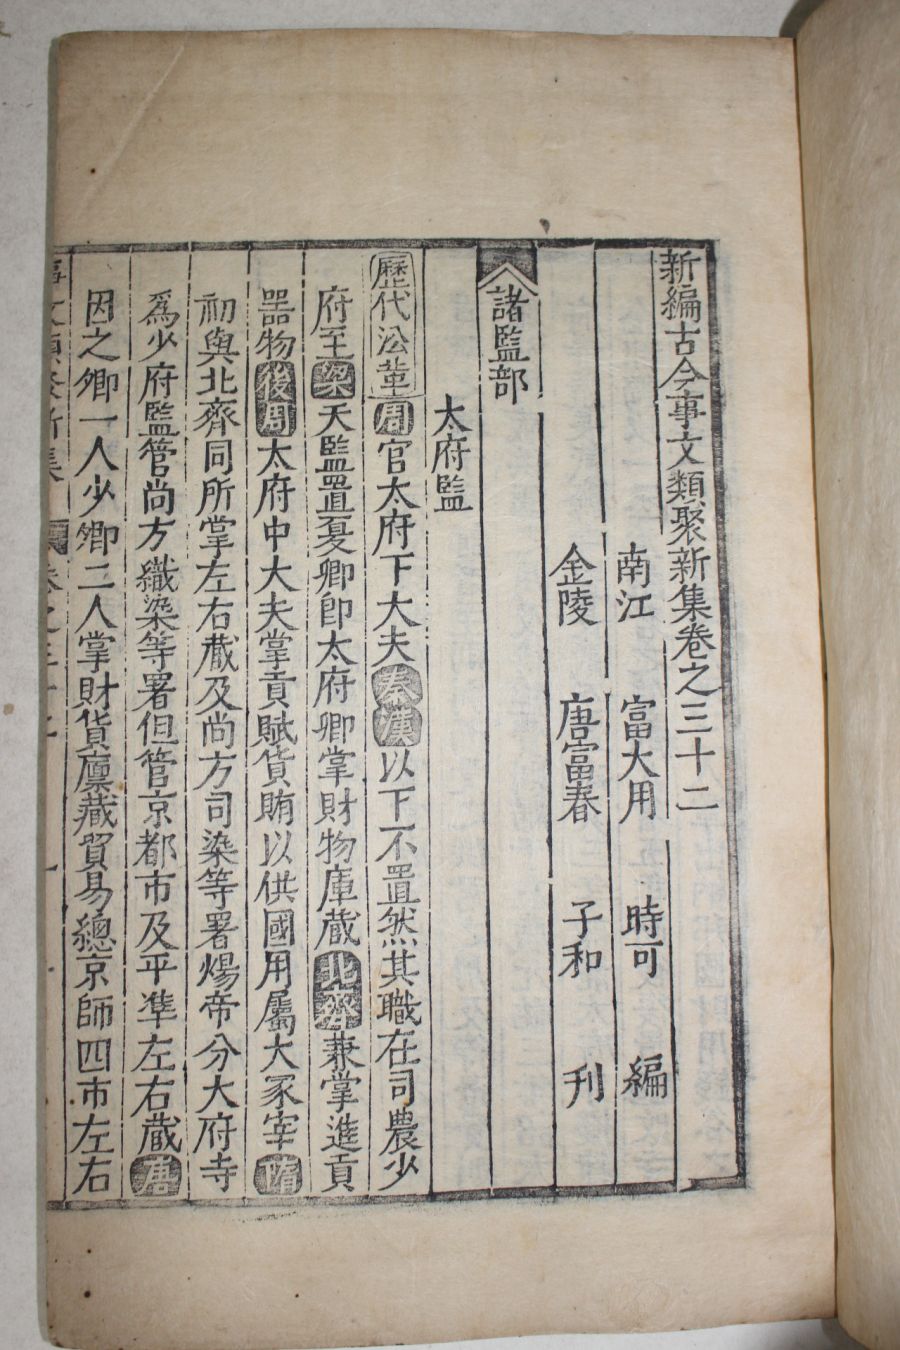 新編古今事文類聚新集卷之三十二
南江 富大用 時可 編
金陵 唐富春 子和 刊
諸監部
太府監
歷代沿革周官太府下大夫秦漢以下不置然其職在司農少
府至梁天監置夏卿卽太府卿掌財物庫藏北齊兼掌進貢
器物後周太府中大夫掌貢賦貨賄以供國用屬大冢宰隋
初與北齊同所掌左右藏及尚方司染等署煬帝分大府寺
爲少府監管尚方織染等署但管京都市及平準左右藏唐
因之卿一人少卿二人掌財貨廩藏貿易總京師四市左右